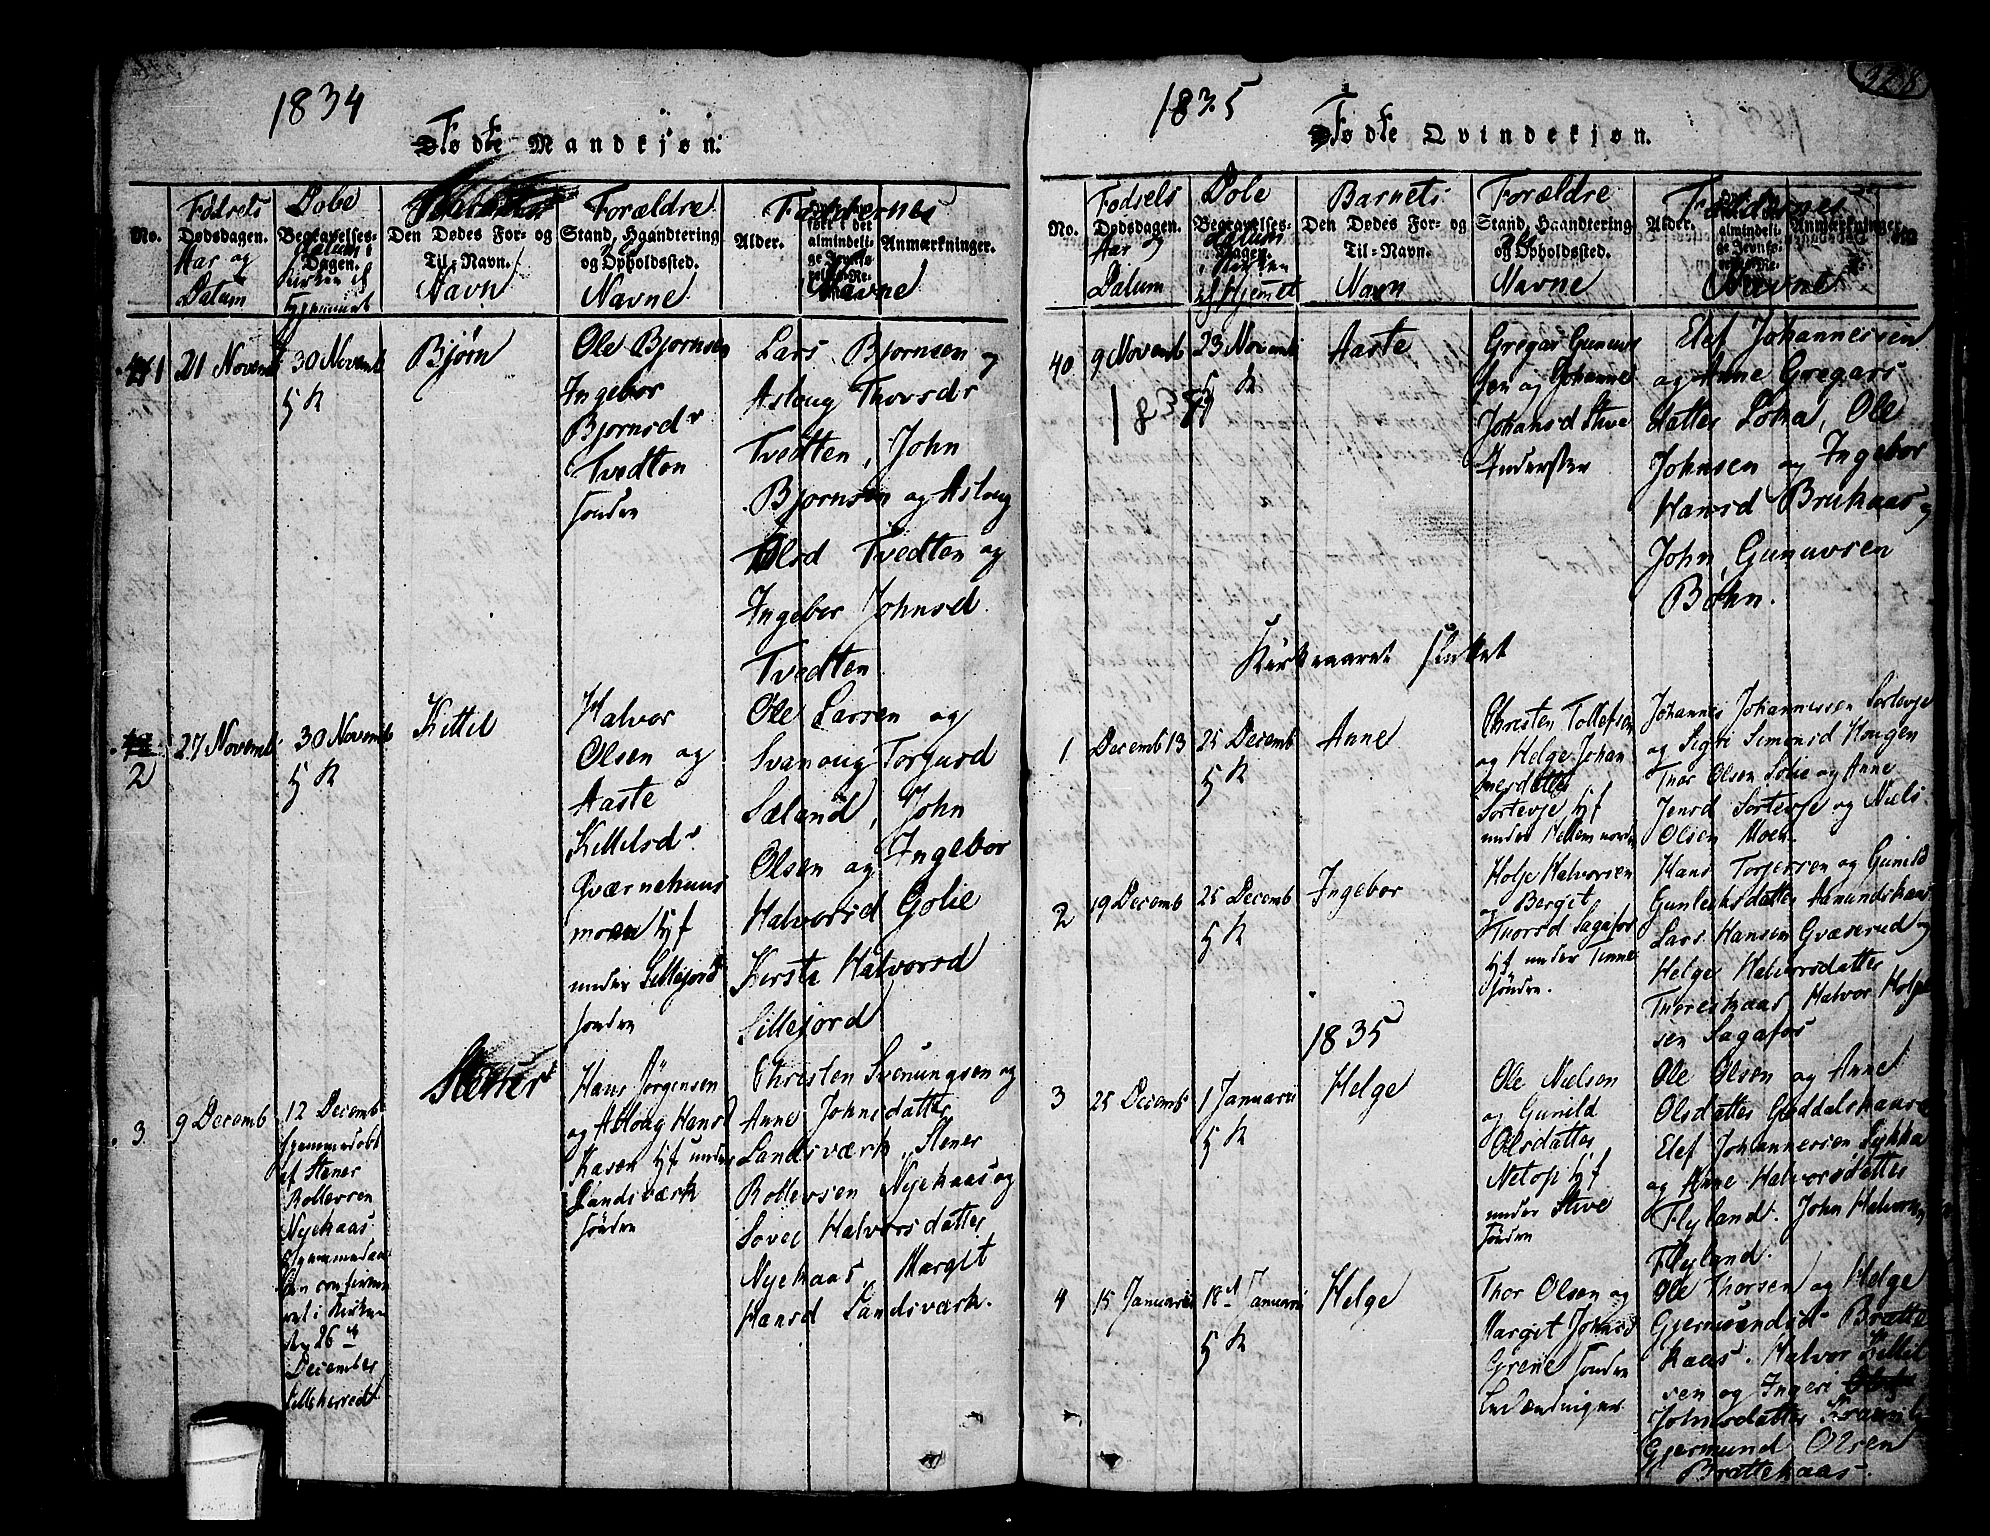 1834
Fødte Mandkjøn.
No.
Fødsels
Dødsdagen.
Aar og
Datum
Dobe
Begravelses-
Dagen.
Kirken el
Hjemmet
Den Dødes For- og
Til-Navn.
Navn
Forældre
Stand, Haandtering
og Opholdssted.
Navne
Alder.
Faddernes
Anmærkninger.
Navne
1
21 Novemb
30 Novemb
Bjørn
Ole Bjornsen
Ingebor
Bjornsd
Tvedten
Lars Bjornsen og
Asloug Thorsdr
Tvedten, John
Bjornsen og Asloug
Olsd Tvedten og
Ingebor Johnsd.
Tvedten
2
27 Novemb
30 Novemb
Kittil
Halvor
Olsen og
Aaste
Kittelsd
Qværnehuus
moen
under Lillejord
Ole Larsen og
Svanoug Torjusd
Sæland, John
Olsen og Ingebor
Halvorsd Golie
Kirsti Halvorsd
Lillejord
3
9 Decemb
12 Decemb
hjemmedøbt
af Stener
Rollevsen
Nyehaas
ret i Kirken
den 26
December
Lilleherred
Stener
Hans Jørgensen
og Asloug Hansd
Kasen under
Landsværk
Christen Svenungsen og
Anne Johnsdatter
Landsværk, Stener
Rollevsen Nyehaas og
Lovei Halvorsdatter
Nyehaas, Margit
Hansd Landsværk.
1835
328
Fødte Qvindekjøn.
No.
Fødsels
Dødsdagen.
Aar og
Datum
Dobe
Begravelses-
Datum
Dagen.
i Kirken
el Hjemet
Barnets
Den Dødes For- og
Til-Navn.
Navn
Forældre
Stand, Haandtering
og Opholdssted.
Navne
Alder.
Faddernes
Anmærkninger.
Navne
40
9 Novemb
23 Novemb
Aaste
Gregar Gunuus
sen og Johanne
Johansd Stive
Elef Johannessen
og Anne Gregars
datter Loha, Ole
Johnsen og Ingebor
Hansd Bruhaas og
John Gunuvsen
Bøhn.
Kirkeaaret sluttet
1
Decemb 13
25 Decemb
Anne
Christen Tollefsen
og Helge Johan
nesdatter
Sortevje
under Mellem
Johannes Johannessen Sortevje
og Sigri Simonsd Hougen
Thor Olsen Solie og Anne
Jensd Sortevje og Niels
Olsen Moen.
2
19 Decemb
25 Decemb
Ingebor
Holje Halvorsen
og Bergit
Thorsd Sagafos
under Tinne
Hans Torjersen og Gunild
Gunleiksdatter Aamundshaas
Lars Hansen Gvæserud og
Helge Halvorsdatter
Thoreshaas Halvor Holje
sen Sagafos
1835
3
25 Decemb
1 Januarii
Helge
Ole Nielsen
og Gunild
Olsdatter
Netop
under Stive
Ole Olsen og Anne
Olsdatter Guddalshaas
Elef Johannessen Lykka
og Anne Halvorsdatter
Flyland. John Halvorsen
Flyland.
4
15 Januarii
18 Januarii
Helge
Thor Olsen og
Margit Johnsd
Grene
Ole Thorsen og Helge
Gjermundsd Bratte
haas. Halvor Kittil
sen og Ingeri
Johnsdatter
Gjermund Olsen
Brattehaas.